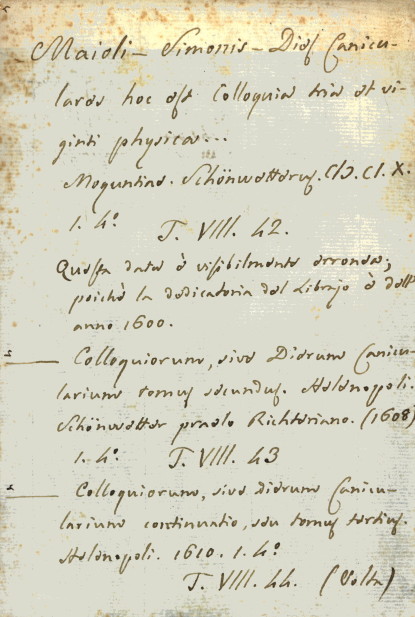 Maioli - Simonis - Dies Canicu-
lares hoc est Colloquia tria et vi-
ginti physica...
Moguntiae. Schönwetterus. CIↃ. CI. X.
1. 4.º T. VIII. 42.
Questa data è visibilmente erronea;
poichè la dedicatoria del Librajo è dell'
anno 1600.
——— Colloquiorum, sive Dierum Canicu-
larium tomus secundus. Helenopoli.
Schönwetter praelo Richteriano. (1608)
1. 4.º T. VIII. 43
——— Colloquiorum, sive Dierum Canicu-
larium continuatio, seu tomus tertius.
Helenopoli. 1610. 1. 4.º
T. VIII. 44. (Volta)